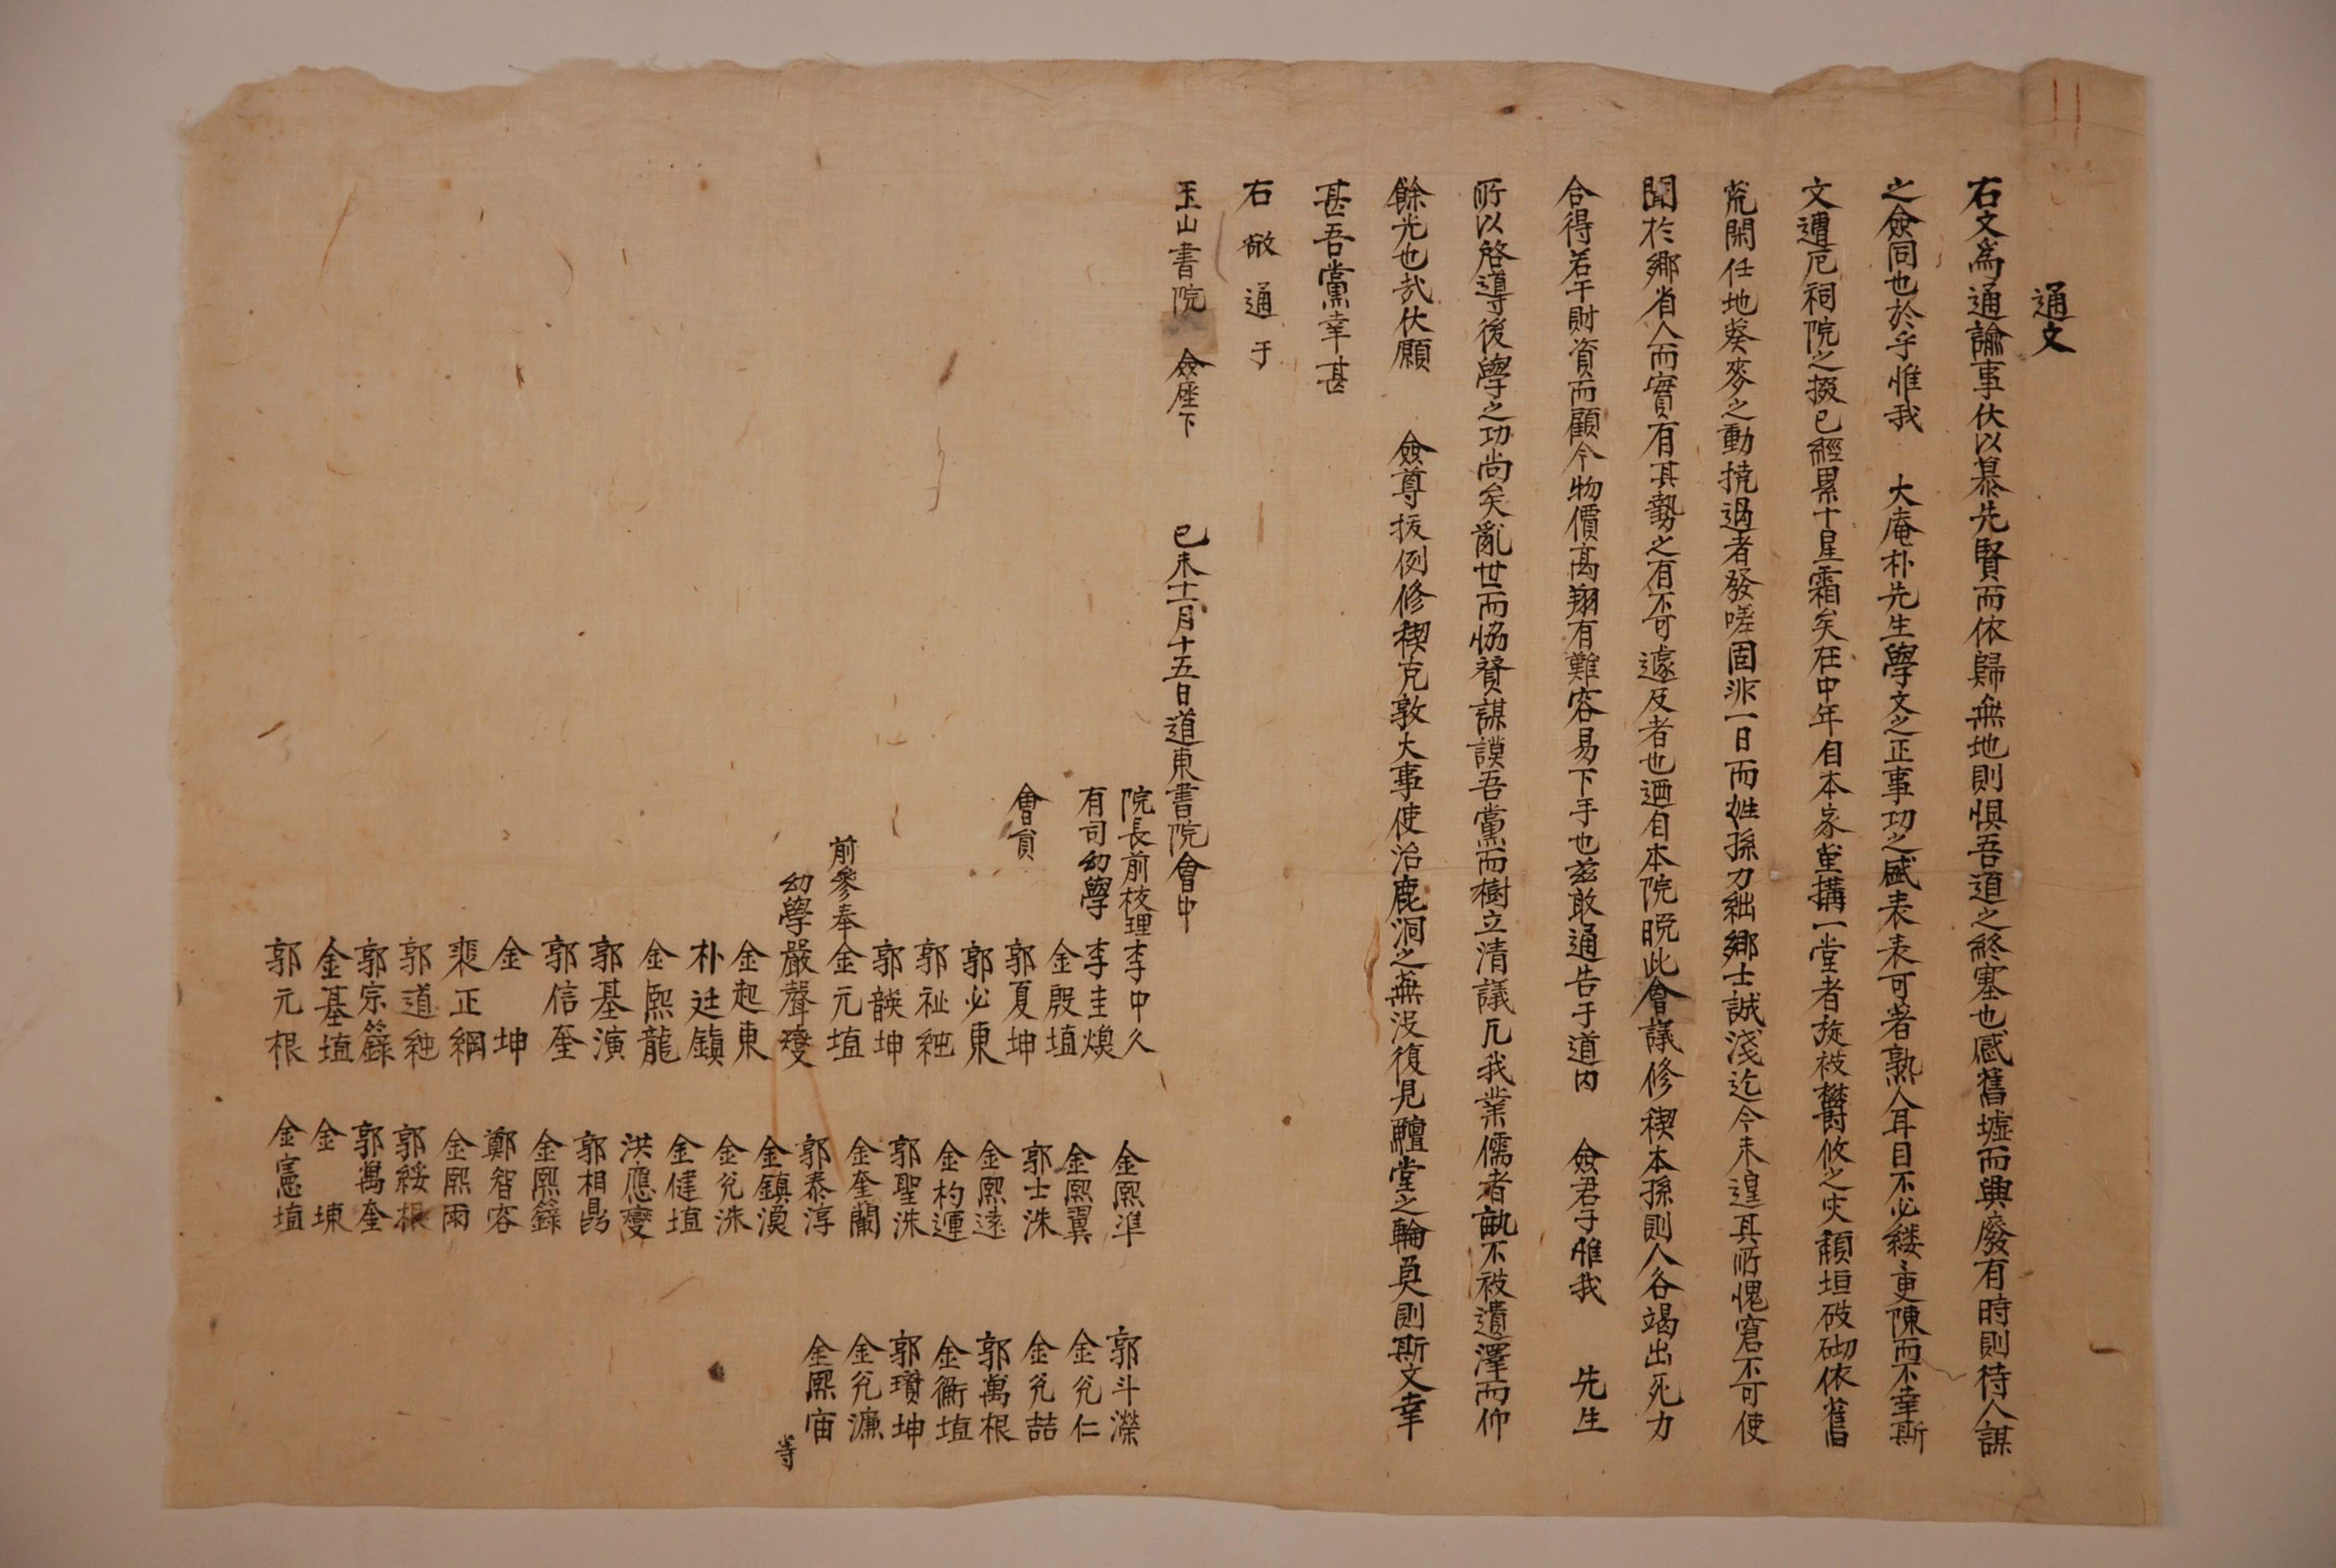 通文
右文爲通諭事伏以慕先賢而依歸無地則惧吾道之終塞也感舊墟而興廢有時則待人謀
之僉同也於乎惟我 大庵朴先生學文之正事功之盛表表可著熟人耳目不必縷更陳而不幸斯
文遭厄祠院之掇已經累十星霜矣在中年自本家堂搆一堂者旋被欝攸之灾頹垣破砌依舊
荒閑任地葵麥之動撓過者發嗟固非一日而姓孫力絀鄉士誠淺迄今未遑其所愧窘不可使
聞於鄉省人而實有其勢之有不可遽及者也迺自本院晩此會議修禊本孫則人各竭出死力
合得若干財資而顧今物價高翔有難容易下手也玆敢通告于道內 僉君子惟我 先生
所以啓導後學之功尚矣亂世而恊贊謀謨吾黨而樹立清議凡我業儒者孰不被遺澤而仰
餘光也哉伏願 僉尊抜例修禊克敦大事使治鹿洞之蕪沒復見鱣堂之輪奐則斯文幸
甚吾黨幸甚
右敬通于
玉山書院 僉座下
己未十一月十五日道東書院會中
院長前校理李中久
有司幼學李圭煥
金殷埴
會員
郭夏坤
郭必東
郭祉䄇
郭䪸坤
前參奉金元埴
幼學嚴聲燮
金起東
朴廷鎮
金熙龍
郭基演
郭信奎
金坤
裴正綱
郭道䄇
郭宗籙
金基埴
郭元根
金熙準
金熙翼
郭士洙
金熙遠
金杓運
郭聖洙
金奎蘭
郭泰淳
金鎮漠
金兊洙
金健埴
洪應燮
郭相昺
金熙籙
鄭智容
金熙雨
郭綏根
郭萬奎
金 埬
金憲埴
郭斗濚
金兊仁
金兊喆
郭萬根
金衡埴
郭瓚坤
金兊濂
金熙庙
等